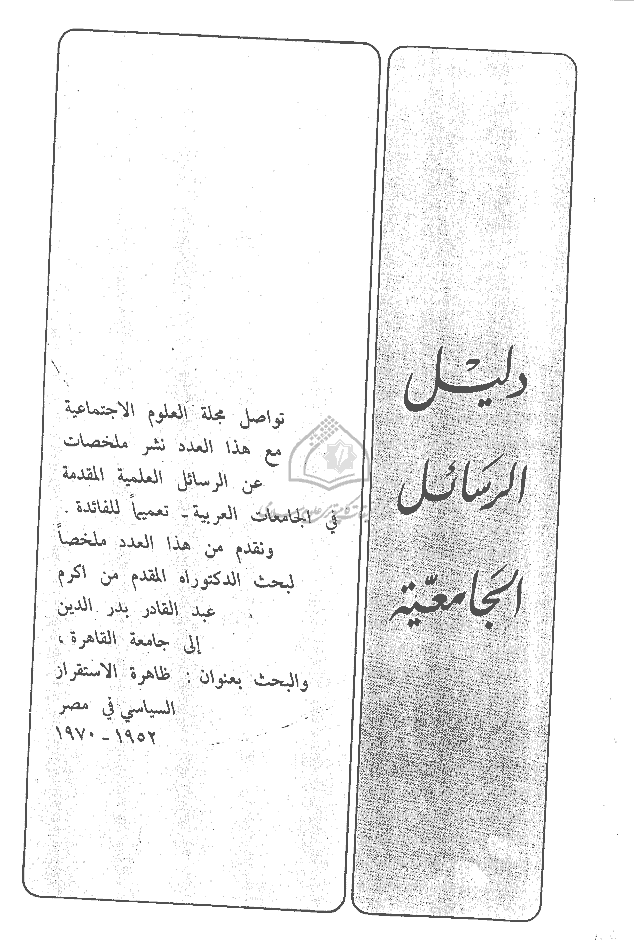 دليل
الرسائل
الجامعية
تواصل مجلة العلوم الاجتماعية
مع هذا العدد نشر ملخصات
عن الرسائل العلمية المقدمة
في الجامعات العربية - تعميماً للفائدة .
ونقدم من هذا العدد ملخصاً
لبحث الدكتوراه المقدم من اكرم
عبد القادر بدر الدين
إلى جامعة القاهرة ،
والبحث بعنوان : ظاهرة الاستقرار
السياسي في مصر
١٩٥٢ - ١٩٧٠